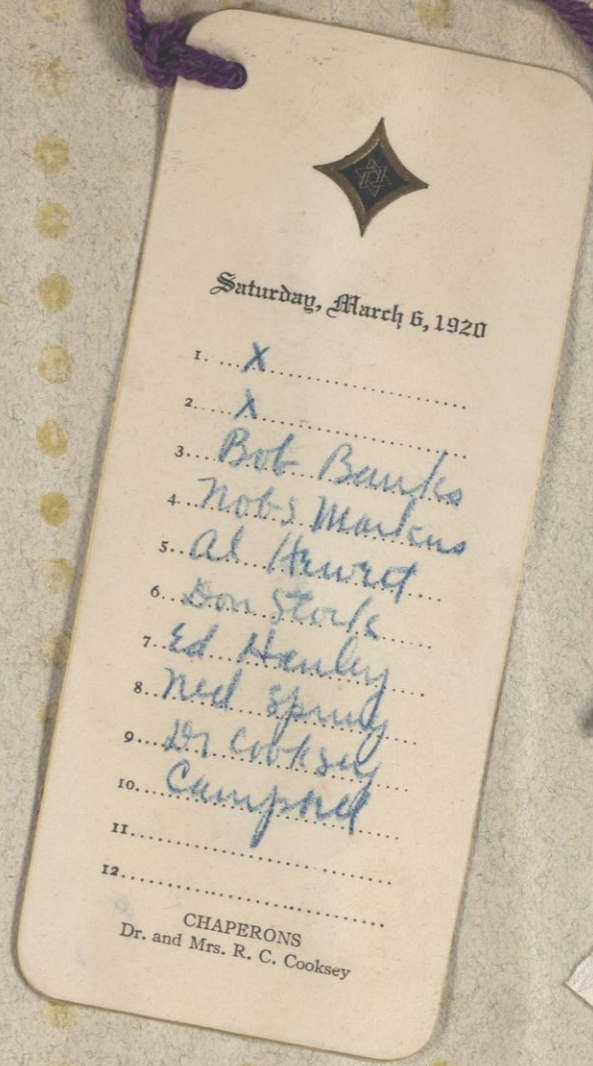 Saturday, March 6, 1920
1. X
2. X
3. Bob Banks
4. Nobs Markus
5. Al Hewett
6. Don Stork
7. Ed Hanley
8. Ned Spring
9. Dr Cooksey
10.
11.
12.
CHAPERONS
Dr. and Mrs. R. C. Cooksey